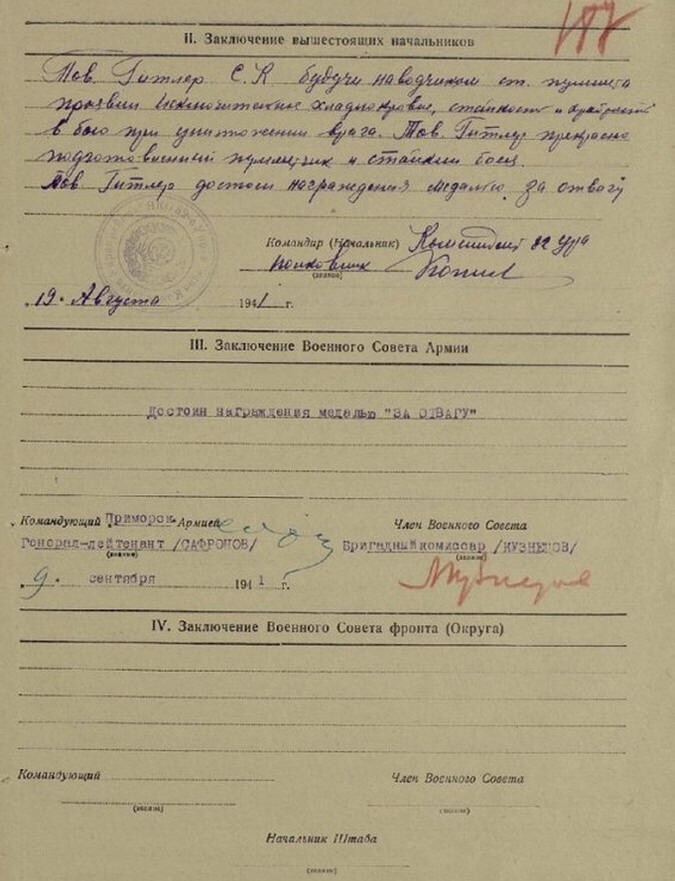 177
II. Заключение вышестоящих начальников
Тов. Гитлер С.К будучи наводчиком ст. пулемета
проявил исключительное хладнокровие, стойкость и храбрость
в бою при уничтожении врага. Тов. Гитлер прекрасно
подготовленный пулеметчик и стойкий боец.
Тов. Гитлер достоин награждения медалью за отвагу
Командир (Начальник) Комендант 82 ура
полковник
(звание)
19. Августа 1941 г.
III. Заключение Военного Совета Армии
Достоин награждения медалью "ЗА ОТВАГУ"
Командующий Приморск. Армией
Член Военного Совета
Генерал-лейтенант /САФРОНОВ/
Бригадный комиссар /КУЗНЕЦОВ/
(звание) (звание)
9. сентября 1941 г.
IV. Заключение Военного Совета фронта (Округа)
Командующий
Член Военного Совета
(звание) (звание)
Начальник Штаба
(звание)